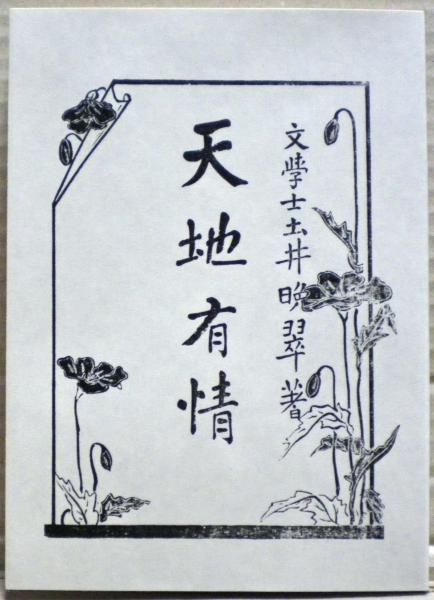 文學士土井晚翠著
天地有情